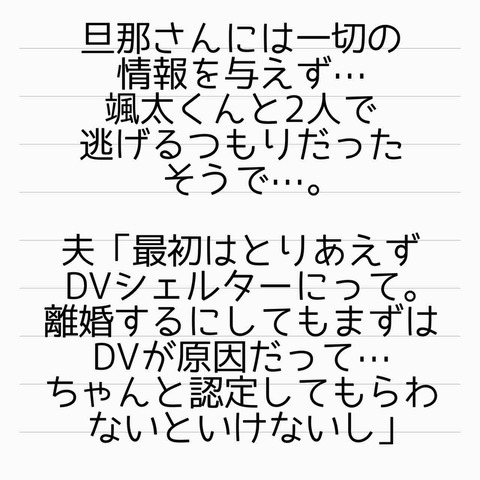 旦那さんには一切の
情報を与えず…
颯太くんと2人で
逃げるつもりだった
そうで…。
夫「最初はとりあえず
DVシェルターにって。
離婚するにしてもまずは
DVが原因だって…
ちゃんと認定してもらわ
ないといけないし」